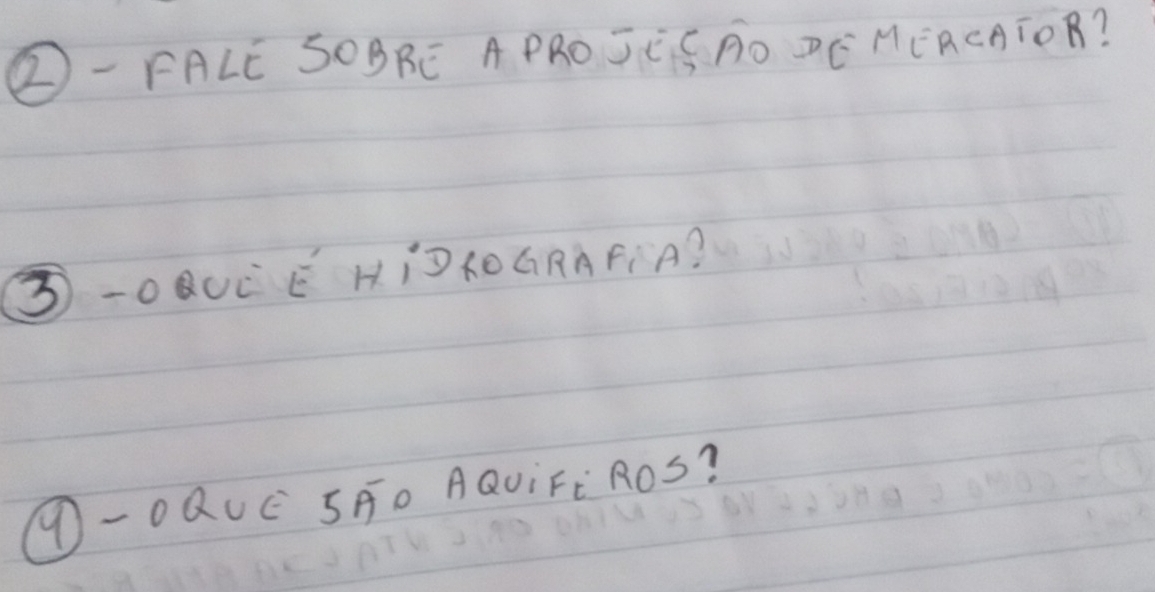 2 - FALE SOBRE A PROJEÇÃO DE MERCATOR?
3 - O QUE É HIDROGRAFIA?
4 - O QUE SÃO AQUIFEROS?